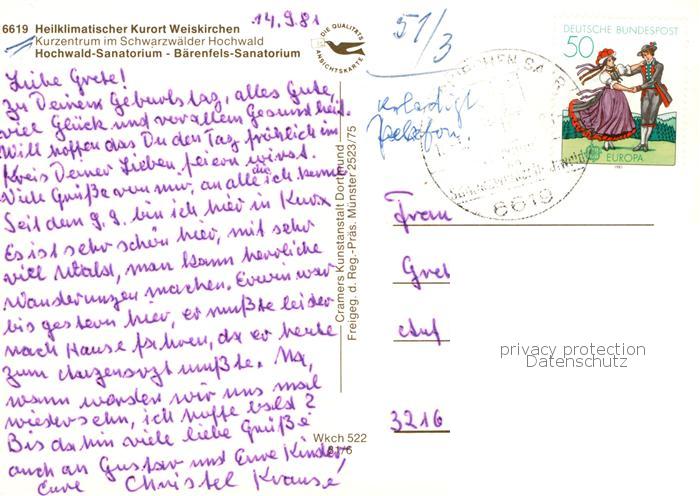 14.9.81
6619 Heilklimatischer Kurort Weiskirchen
Kurzentrum im Schwarzwälder Hochwald
Hochwald-Sanatorium - Bärenfels-Sanatorium
DIE QUALITÄTS
ANSICHTSKARTE
51/3
erledigt
Telefon.
DEUTSCHE BUNDESPOST
50
EUROPA
6619
Liebe Grete!
Zu Deinem Geburtstag, alles Gute,
viel Glück und vor allem Gesundheit.
Will hoffen das Du den Tag fröhlich im
Kreis Deiner Lieben feiern wirst.
Viele Grüße von mir, an alle die ich kenne.
Seit dem 9.9. bin ich hier in Kur.
Es ist sehr schön hier, mit sehr
viel Wald, man kann herrliche
Wanderungen machen. Erwin war
bis gestern hier, er mußte leider
nach Hause fahren, da er heute
zum Augenarzt mußte. Na,
wann werden wir uns mal
wiedersehn, ich hoffe bald?
Bis dahin viele liebe Grüße
auch an Gustav und Eure Kinder,
Eure Christel Krause
Cramers Kunstanstalt Dortmund
Freigeg. d. Reg.-Präs. Münster 2523/75
Wkch 522
81/6
Frau
Gret
Auf
3216
privacy protection
Datenschutz